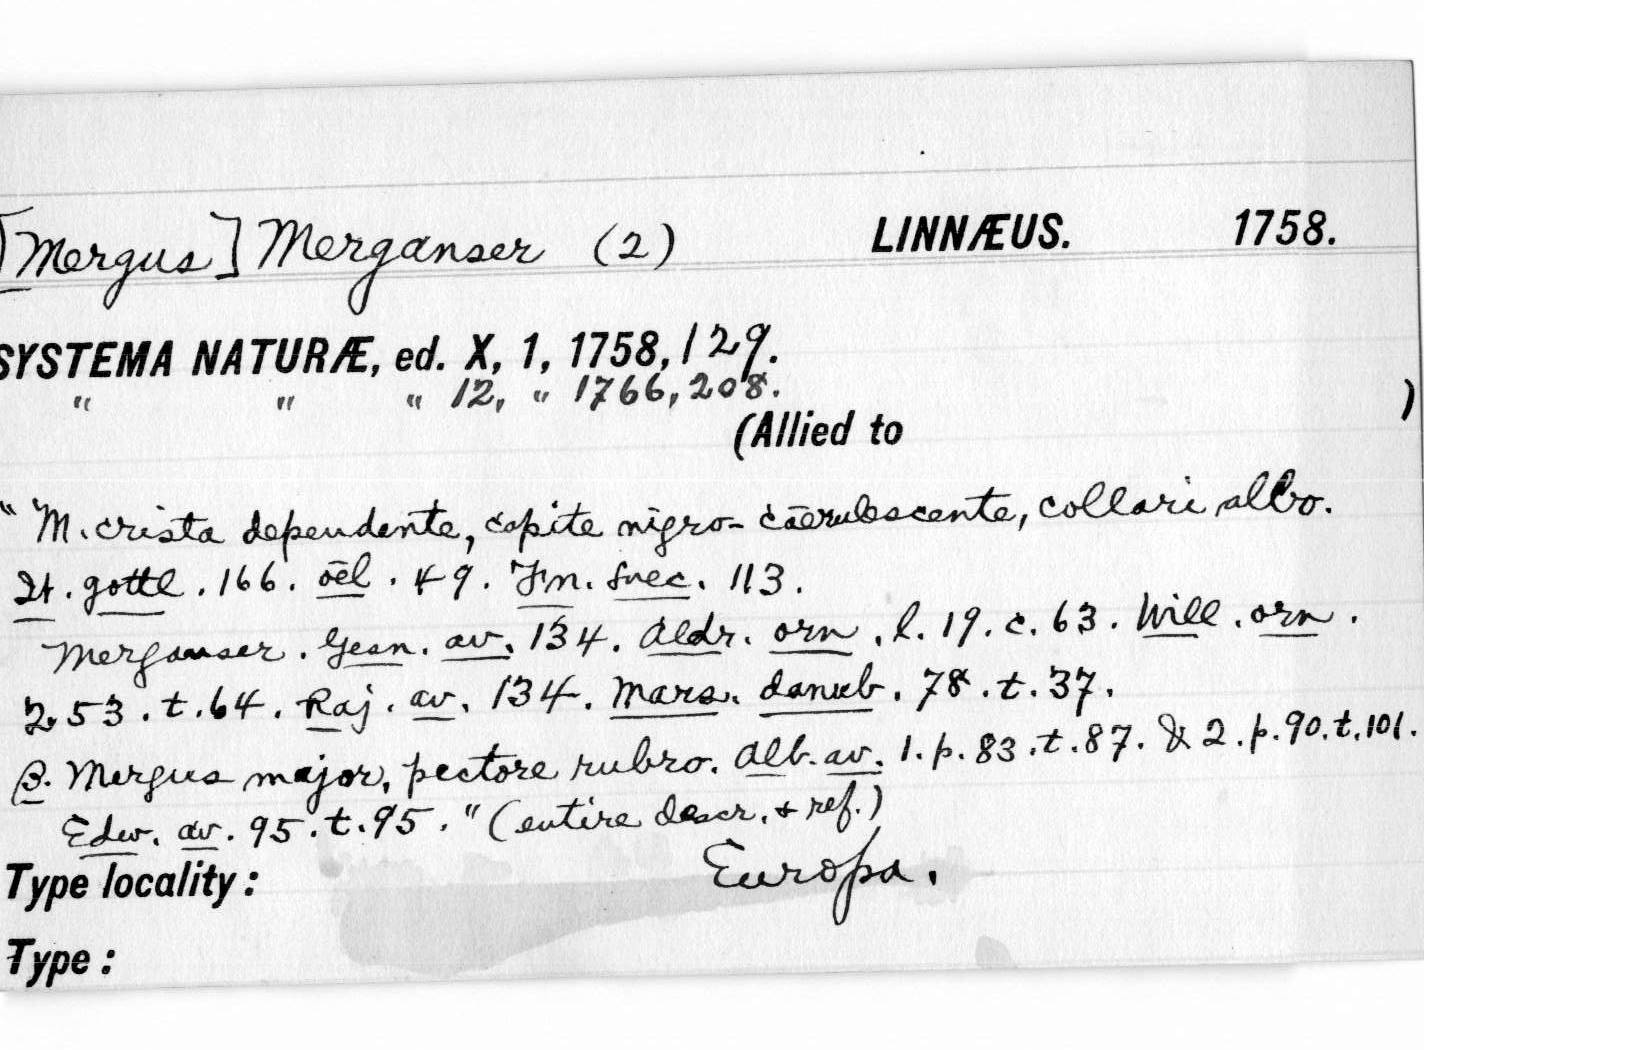 [Mergus] Merganser (2) LINNÆUS. 1758.
SYSTEMA NATURÆ, ed. X, 1, 1758, 129.
" " " 12, " 1766, 208.
(Allied to )
"M. crista dependente, capite nigro-cāerulescente, collari albo.
It. gottl. 166. oēl. 49. Fn. svec. 113.
Merganser. Gesn. av. 134. Aldr. orn. l. 19. c. 63. Will. orn.
253. t. 64. Raj. av. 134. Mars. danub. 78. t. 37.
β. Mergus major, pectore rubro. Alb. av. 1. p. 83. t. 87. & 2. p. 90. t. 101.
Edw. av. 95. t. 95." (entire descr. & ref.)
Type locality: Europa.
Type: